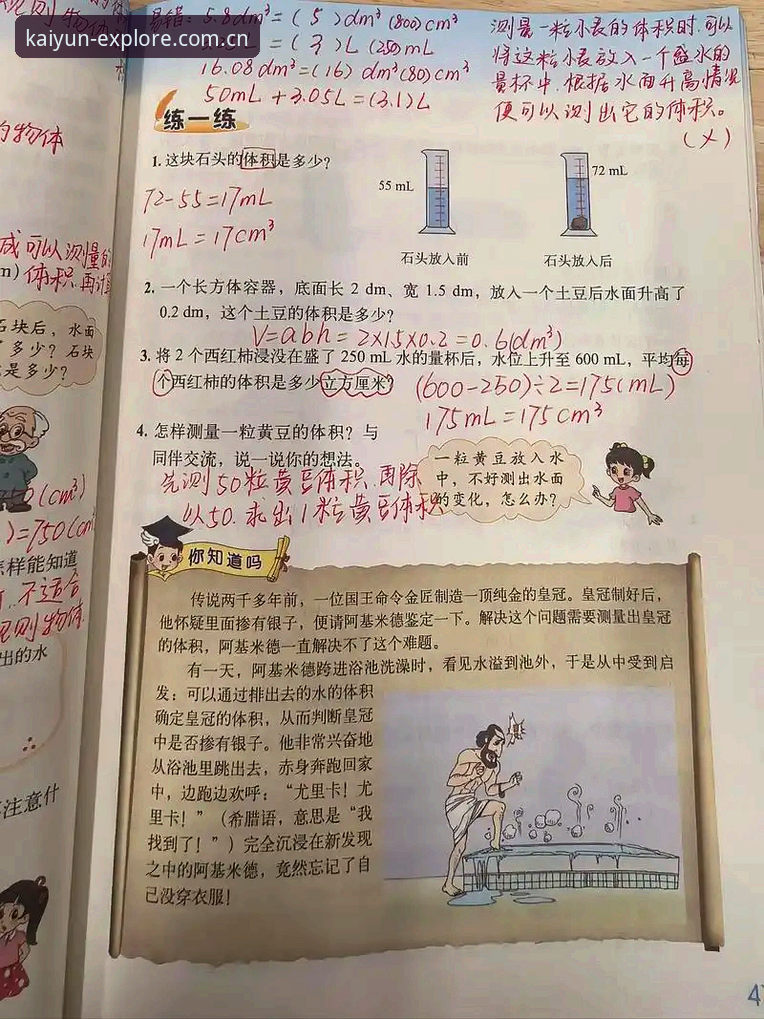 kaiyun-explore.com.cn
易错：5.8dm³=(5)dm³(800)cm³
=(3)L(250)mL
16.08dm³=(16)dm³(80)cm³
50mL+3.05L=(3.1)L
测量一粒小麦的体积时,可以
将这粒小麦放入一个盛水的
量杯中.根据水面升高情况
便可以测出它的体积。
(×)
练一练
1. 这块石头的体积是多少？
72-55=17mL
17mL=17cm³
55 mL
72 mL
石头放入前
石头放入后
2. 一个长方体容器，底面长 2 dm、宽 1.5 dm，放入一个土豆后水面升高了
0.2 dm，这个土豆的体积是多少？
V=abh=2×1.5×0.2=0.6(dm³)
3. 将 2 个西红柿浸没在盛了 250 mL 水的量杯后，水位上升至 600 mL，平均每
个西红柿的体积是多少立方厘米？
(600-250)÷2=175(mL)
175mL=175cm³
4. 怎样测量一粒黄豆的体积？与
同伴交流，说一说你的想法。
先测50粒黄豆体积.再除
以50.求出1粒黄豆体积
一粒黄豆放入水
中，不好测出水面
的变化，怎么办？
你知道吗
传说两千多年前，一位国王命令金匠制造一顶纯金的皇冠。皇冠制好后，
他怀疑里面掺有银子，便请阿基米德鉴定一下。解决这个问题需要测量出皇冠
的体积，阿基米德一直解决不了这个难题。
有一天，阿基米德跨进浴池洗澡时，看见水溢到池外，于是从中受到启
发：可以通过排出去的水的体积
确定皇冠的体积，从而判断皇冠
中是否掺有银子。他非常兴奋地
从浴池里跳出去，赤身奔跑回家
中，边跑边欢呼：“尤里卡！尤
里卡！”（希腊语，意思是“我
找到了！”）完全沉浸在新发现
之中的阿基米德，竟然忘记了自
己没穿衣服！
的物体
成可以测量的
体积.再计
石块后，水面
了多少？石块
是多少？
(cm³)
)=750(cm³
怎样能知道
不适合
见则物体
出的水
注意什